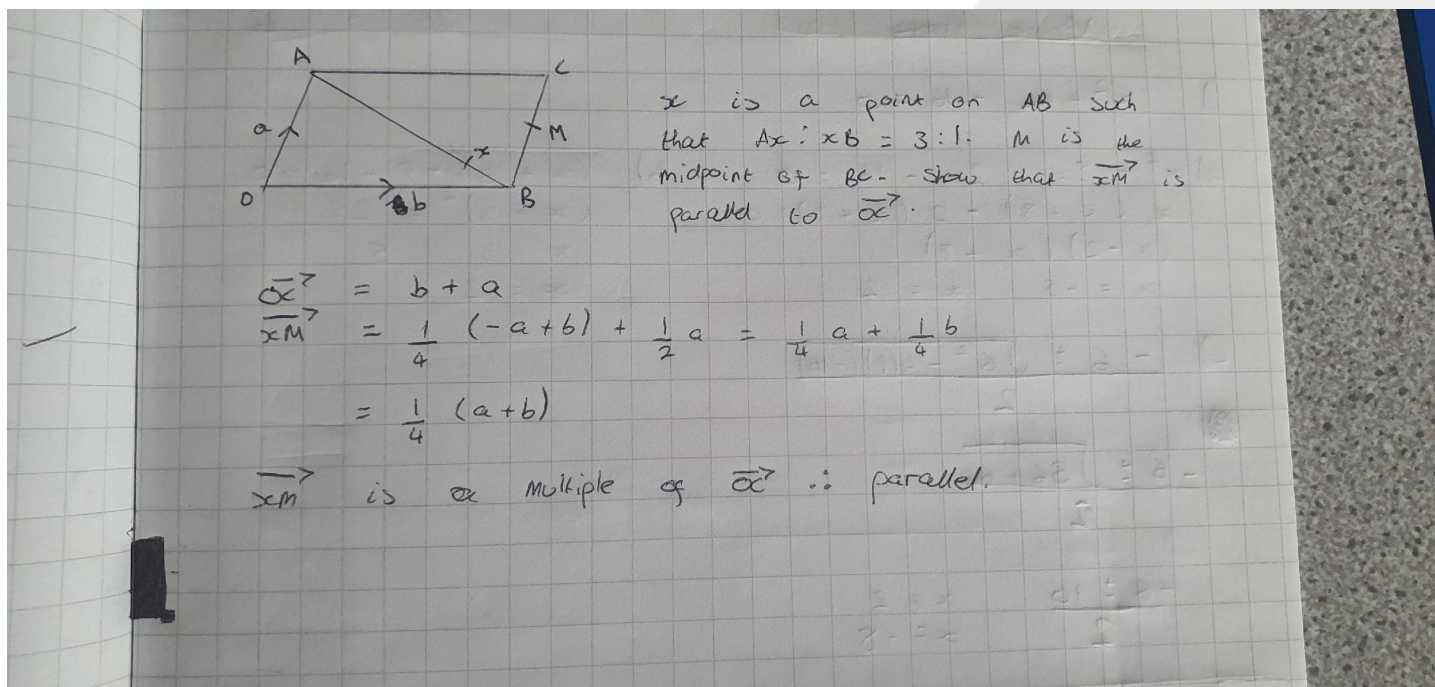 A
C
a
M
x
O
b
B
x is a point on AB such
that Ax : xB = 3 : 1. M is the
midpoint of BC. Show that xM→ is
parallel to OC→.
OC→ = b + a
xM→ = 1/4 (-a + b) + 1/2 a = 1/4 a + 1/4 b
= 1/4 (a + b)
xM→ is a multiple of OC→ ∴ parallel.